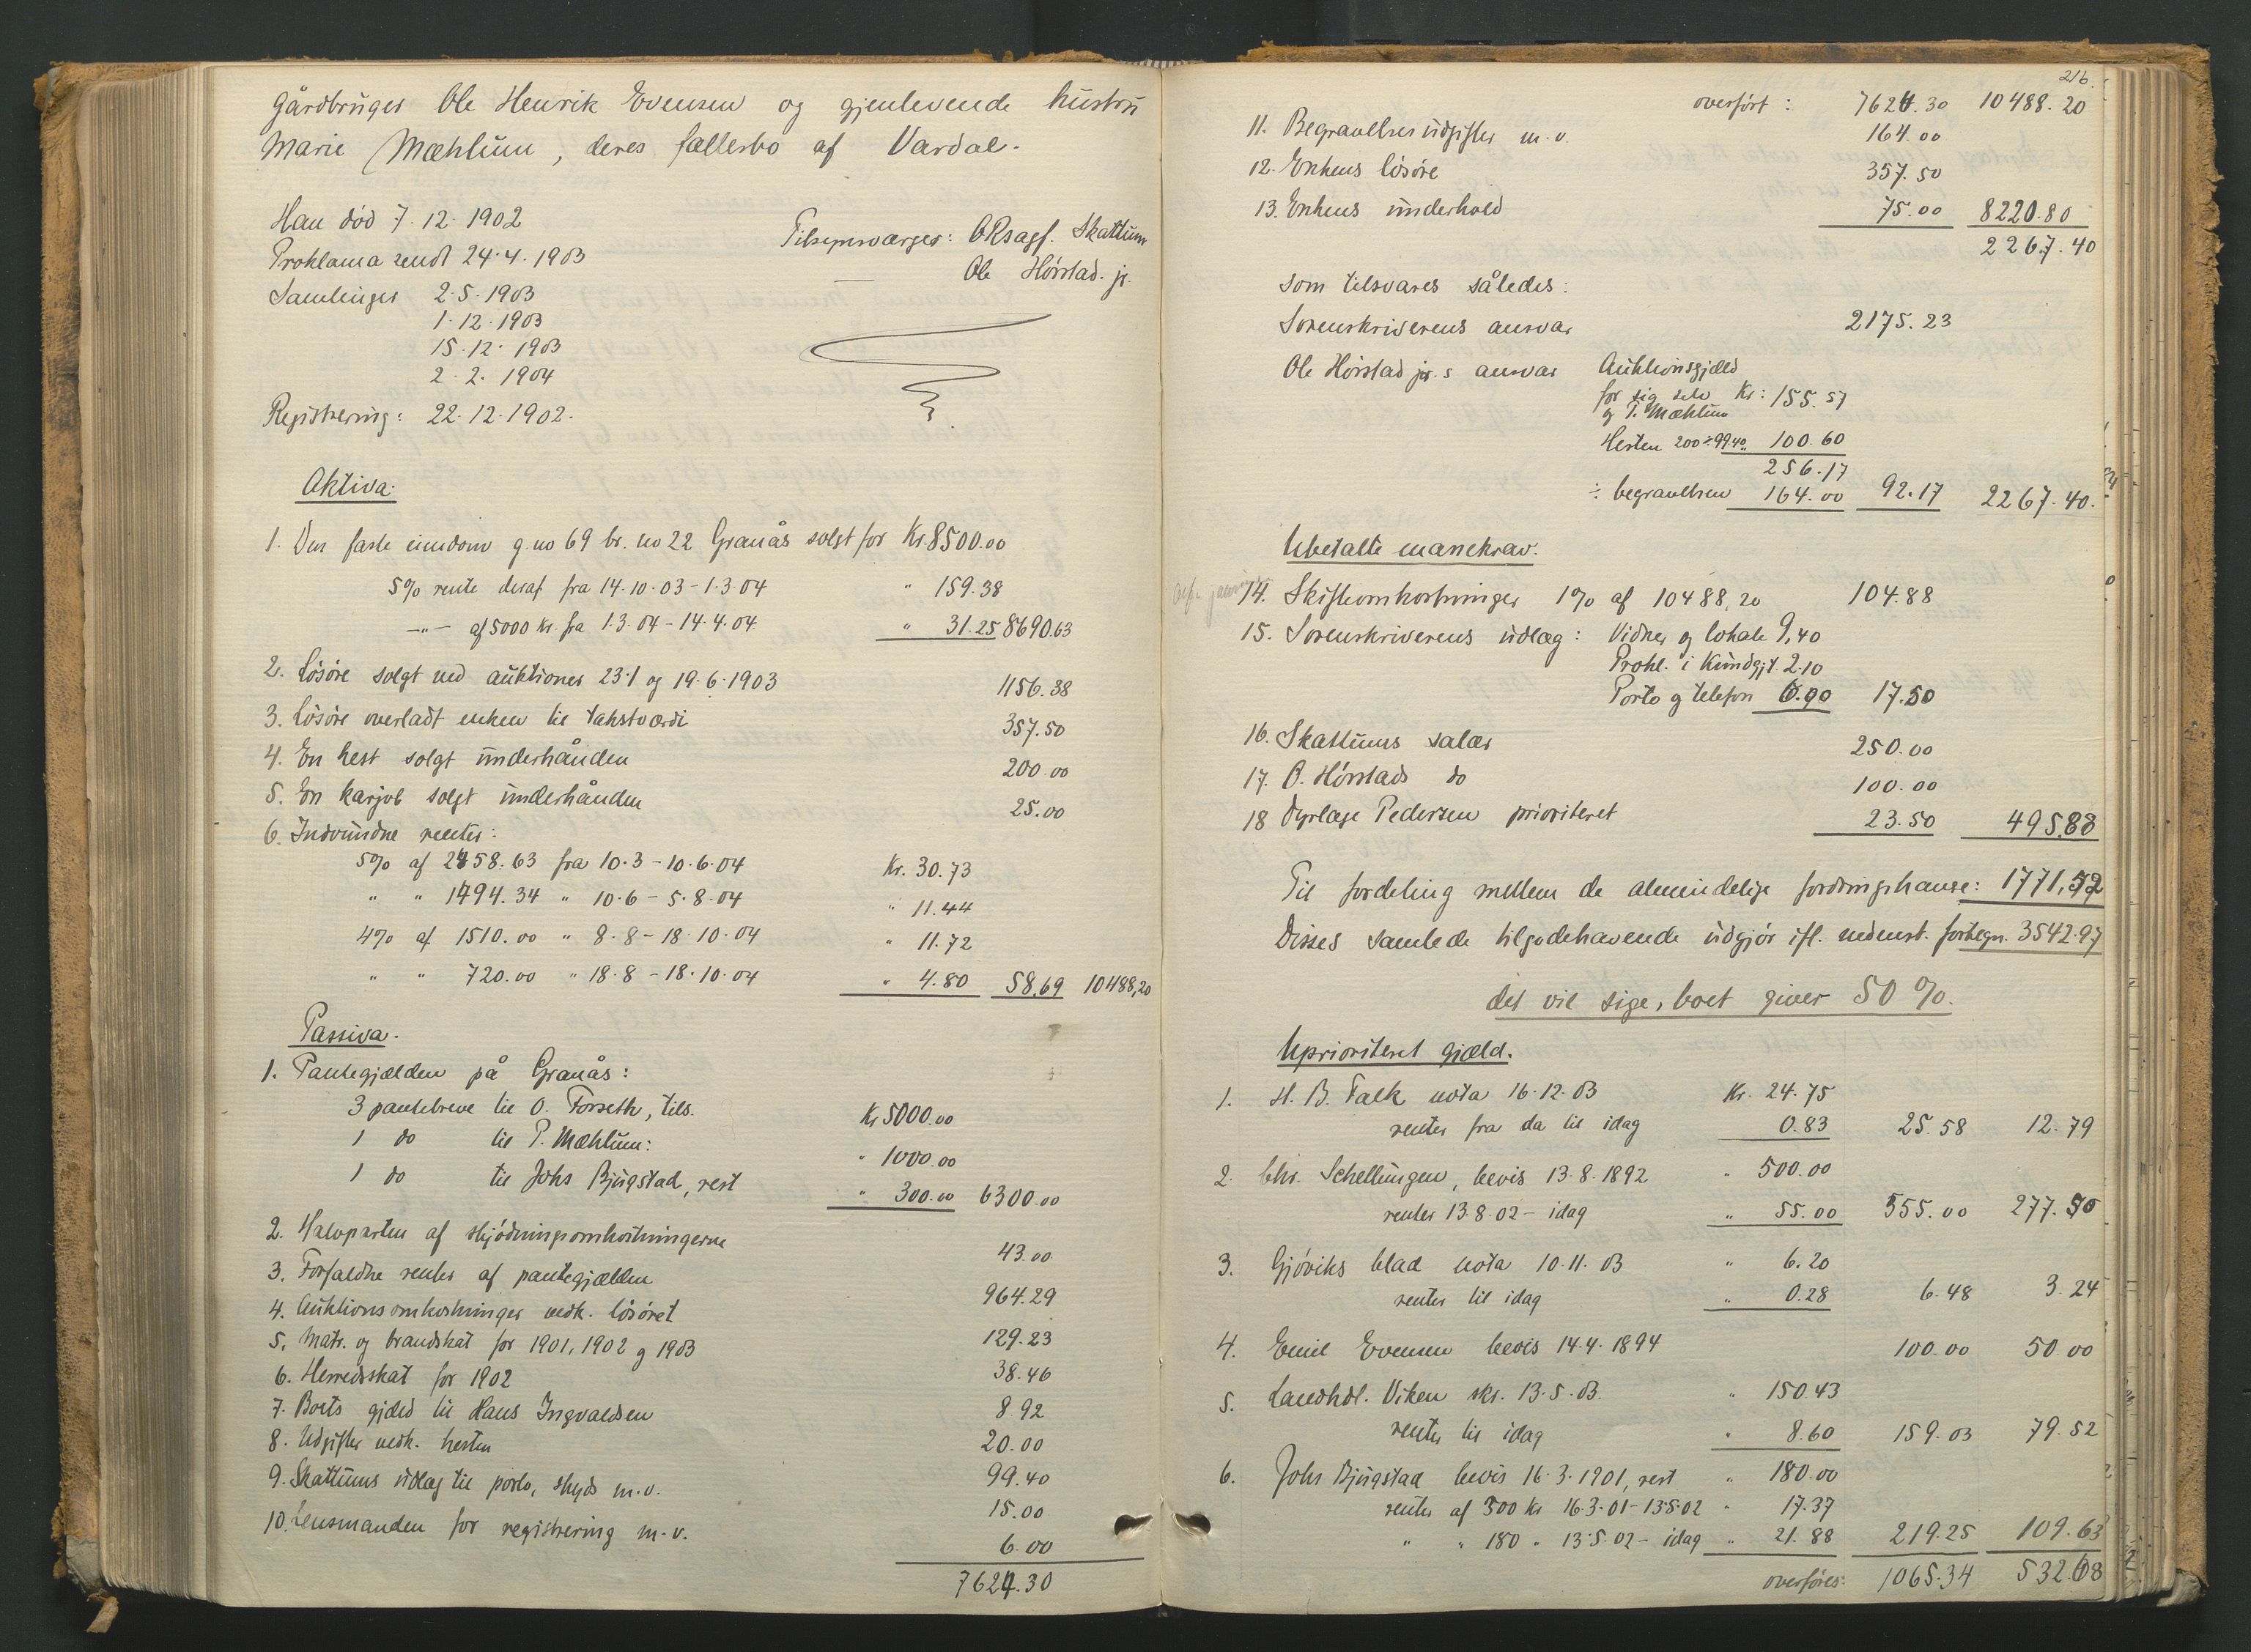 Gårdbruger Ole Henrik Evensen og gjenlevende hustru
Marie Mæhlum, deres fællesbo af Vardal.
Han död 7.12.1902
Proklama sendt 24.4.1903
Samlinger 2.5.1903
1.12.1903
15.12.1903
2.2.1904
Registrering: 22.12.1902.
Tilsynsværger: ORsagf. Skattum
— Ole Hörstad jr.
Aktiva:
1. Den faste eiendom g.no 69 br.no 22 Granås solgt for Kr. 8500.00
5% rente deraf fra 14.10.03 - 1.3.04 " 159.38
—"— af 5000 kr. fra 1.3.04 - 14.4.04 " 31.25 8690.63
2. Lösöre solgt ved auktioner 23.1 og 19.6.1903 1156.38
3. Lösöre overladt enken til takstværdi 357.50
4. En hest solgt underhånden 200.00
5. En karjol solgt underhånden 25.00
6. Indvundne renter:
5% af 2458.63 fra 10.3 - 10.6.04 Kr. 30.73
" " 1494.34 " 10.6 - 5.8.04 " 11.44
4% af 1510.00 " 8.8 - 18.10.04 " 11.72
" " 720.00 " 18.8 - 18.10.04 " 4.80 58.69 10488,20
Passiva.
1. Pantegjælden på Granås:
3 pantebreve til O. Forseth, tils. Kr 5000.00
1 do til P. Mæhlum: " 1000.00
1 do til Johs Bjugstad, rest " 300.00 6300.00
2. Halvparten af skjödningsomkostningerne 43.00
3. Forfaldne renter af pantegjælden 964.29
4. Auktionsomkostninger vedk. lösöret 129.23
5. Matr. og brandskat for 1901, 1902 og 1903 38.46
6. Herredsskat for 1902 8.92
7. Boets gjæld til Hans Ingvaldsen 20.00
8. Udgifter vedk. hesten 99.40
9. Skattums udlæg til porto, skyds m.v. 15.00
10. Lensmanden for registrering m.v. 6.00
7624.30
216.
overfört: 7624.30 10488.20
11. Begravelsesudgifter m.v. 164.00
12. Enkens lösöre 357.50
13. Enkens underhold 75.00 8220.80
2267.40
som tilsvares således:
Sorenskriverens ansvar 2175.23
Ole Hörstad jr.s ansvar Auktionsgjæld
for sig selv Kr: 155.57
og P. Mæhlum
Hesten 200 ÷ 99.40 " 100.60
256.17
÷ begravelsen 164.00 92.17 2267.40.
Ubetalte massekrav.
14. Skifteomkostninger 1% af 10488,20 104.88
15. Sorenskriverens udlæg: Vidner og lokale 9,40
Prokl. i Kundgjt. 2.10
Porto og telefon 6.00 17.50
16. Skattums salær 250.00
17. O. Hörstads do 100.00
18 Dyrlæge Pedersen prioriteret 23.50 495.88
Til fordeling mellem de almindelige fordringshavere: 1771,52
Disses samlede tilgodehavende udgjör ifl. nedenst. fortegn. 3542.97
det vil sige, boet giver 50%.
Uprioriteret gjæld.
1. H. B. Falk nota 16.12.03 Kr. 24.75
renter fra da til idag 0.83 25.58 12.79
2. Chr. Schellungen, bevis 13.8.1892 " 500.00
renter 13.8.02 - idag " 55.00 555.00 277.50
3. Gjöviks blad nota 10.11.03 " 6.20
renter til idag " 0.28 6.48 3.24
4. Emil Evensen bevis 14.4.1894 100.00 50.00
5. Landhdl. Viken skr. 13.5.03. " 150.43
renter til idag " 8.60 159.03 79.52
6. Johs Bjugstad bevis 16.3.1901, rest " 180.00
renter af 300 kr 16.3.01 - 13.5.02 " 17.37
" " 180 " 13.5.02 - idag " 21.88 219.25 109.63
overföres: 1065.34 532.68